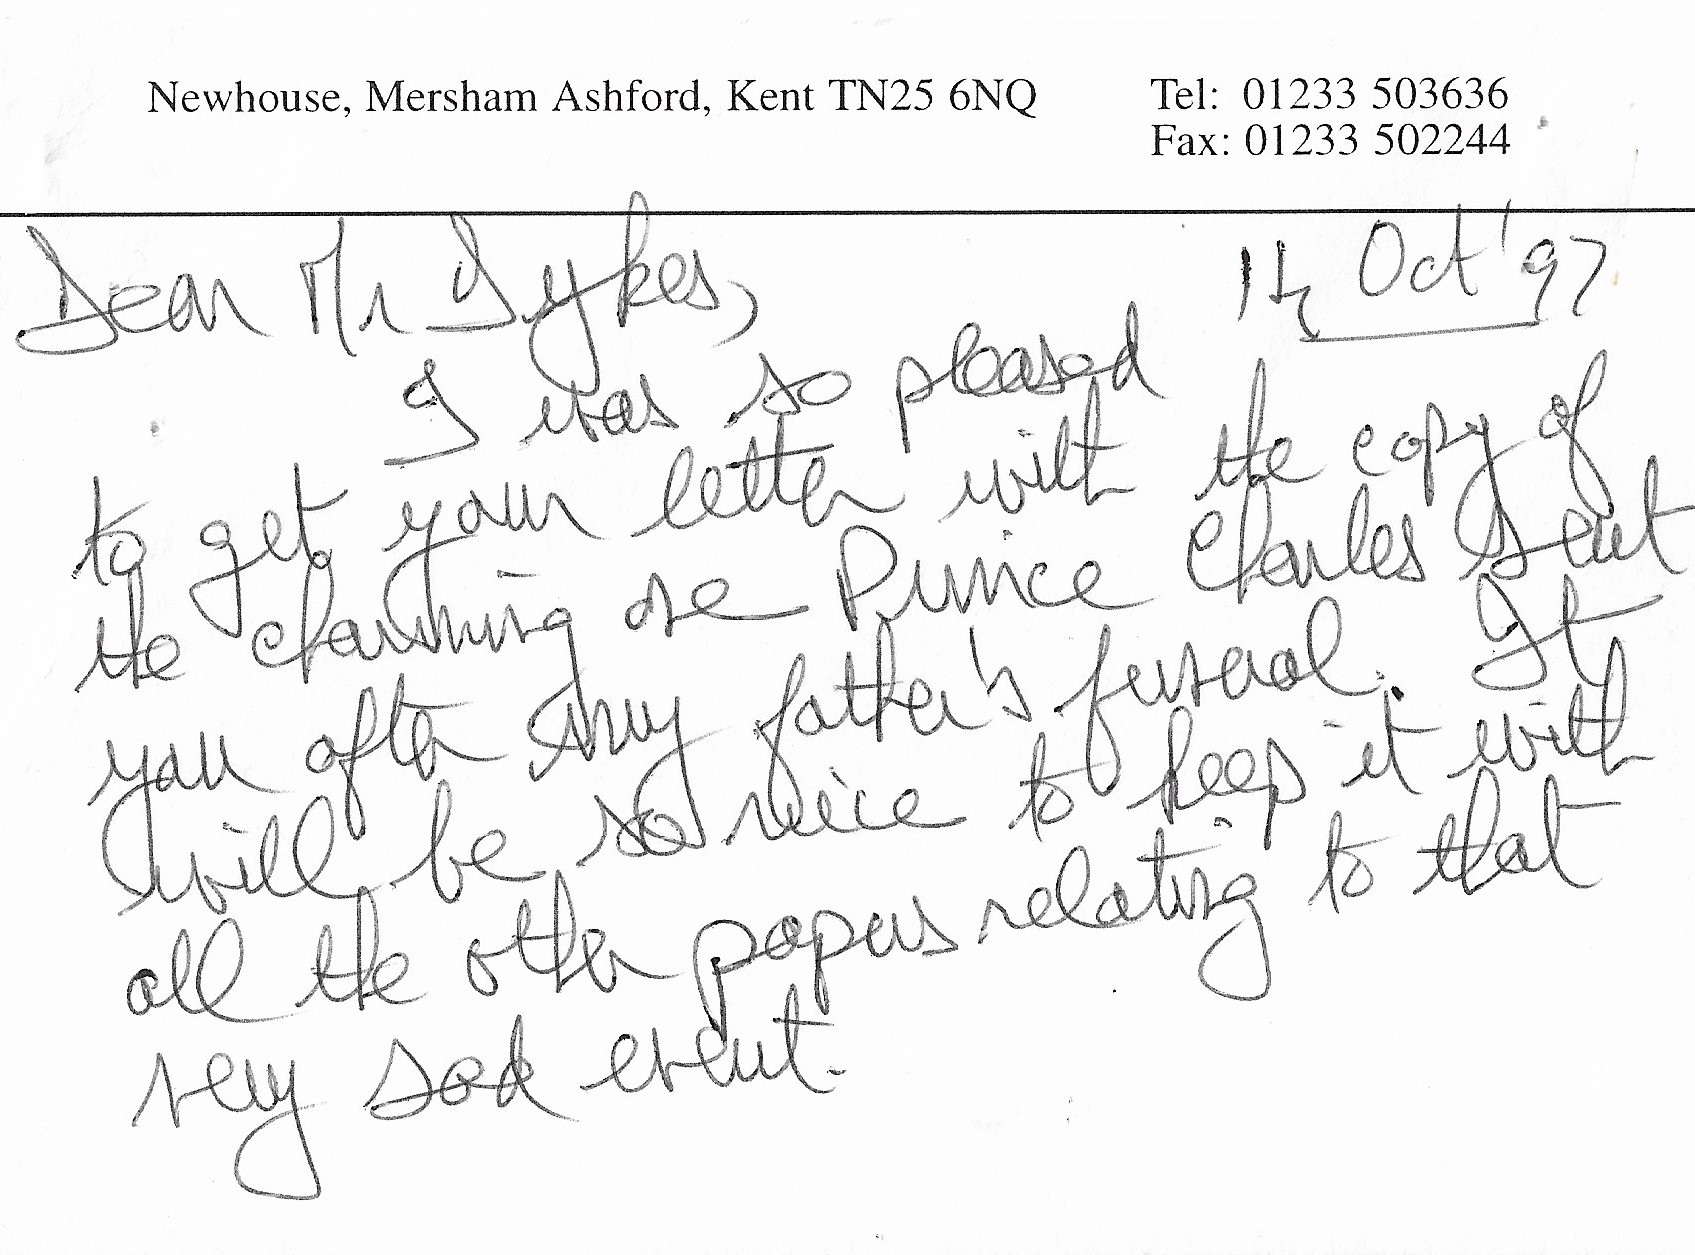 Newhouse, Mersham Ashford, Kent TN25 6NQ
Tel: 01233 503636
Fax: 01233 502244
Oct '97
Dear Mr Sykes,
I was so pleased
to get your letter with the copy of
the charming one Prince Charles sent
you after my father's funeral. It
will be so nice to keep it with
all the other papers relating to that
very sad event.